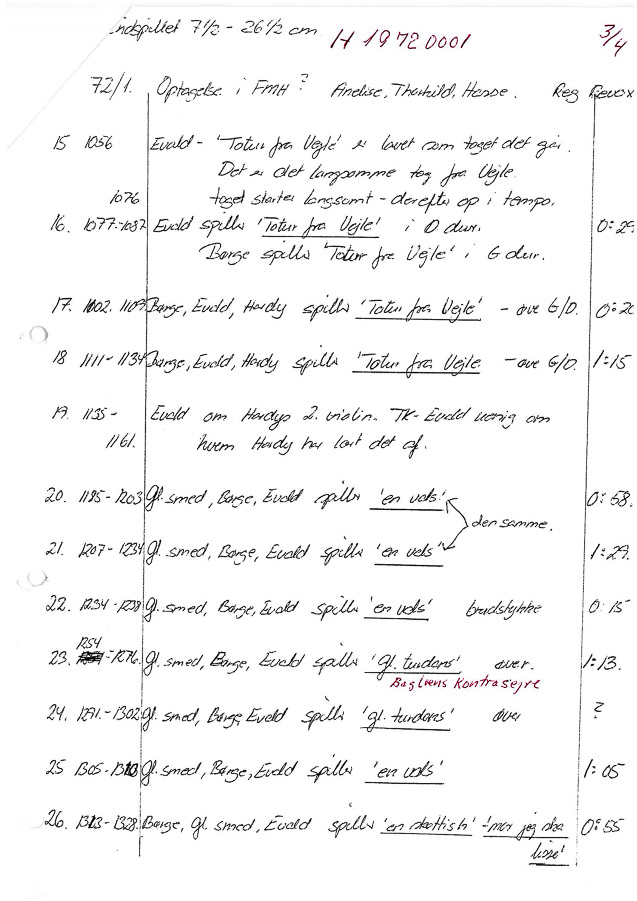 indspillet 7½ - 26½ cm H 1972 0001 3/4
72/1. Optagelse i FMH? Anelise, Thorkild, Hasse. Reg Revox
15 1056 Evald - 'Totur fra Vejle' er lavet som toget det går.
Det er det langsomme tog fra Vejle.
1076 toget starter langsomt - derefter op i tempo.
16. 1077-1087 Evald spiller 'Totur fra Vejle' i D dur. 0:29
Børge spiller 'Totur fra Vejle' i G dur.
17. 1102. 1109 Børge, Evald, Hardy spiller 'Totur fra Vejle' - øve G/D.
18 1111-1134 Børge, Evald, Hardy spiller 'Totur fra Vejle - øve G/D. 1:15
19. 1135- Evald om Hardys 2. violin. TK-Evald uenig om
1161. hvem Hardy har lært det af.
20. 1185-1203 Gl. smed, Børge, Evald spiller 'en vals' 0:58.
den samme.
21. 1207-1234 Gl. smed, Børge, Evald spiller 'en vals' 1:29.
22. 1234-1238 Gl. smed, Børge, Evald spiller 'en vals' brudstykke 0:15
1254
23. -1276. Gl. smed, Børge, Evald spiller 'gl. turdans' øver. 1:13.
Baglæns Kontrasejre
24. 1291.-1302 Gl. smed, Børge, Evald spiller 'gl. turdans' øver ?
25 1305-1313 Gl. smed, Børge, Evald spiller 'en vals' 1:05
26. 1313-1328. Børge, Gl. smed, Evald spiller 'en skottish' - 'mor jeg ska 0:55